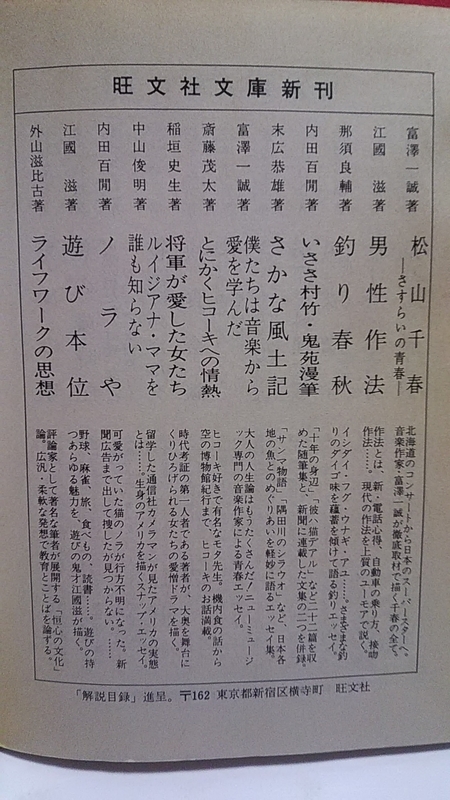 旺文社文庫新刊
富澤一誠著
松山千春
―さすらいの青春―
北海道のコンサートから日本のスーパースターへ。
音楽作家、富澤一誠が徹底取材で描く千春の全て。
江國 滋著
男性作法
作法とは、新・電話心得、自動車の乗り方、接吻
作法……。現代の作法を上質のユーモアで説く。
那須良輔著
釣り春秋
イシダイ・フグ・ウナギ・アユ……。さまざまな釣
りのダイゴ味を蘊蓄を傾けて語る釣りエッセイ。
内田百閒著
いささ村竹・鬼苑漫筆
「十年の身辺」「彼ハ猫デアル」など二十二篇を収
めた随筆集と、新聞に連載した文集の二つを併録。
末広恭雄著
さかな風土記
「サンマ物語」「隅田川のシラウオ」など、日本各
地の魚とのめぐりあいを軽妙に語るエッセイ集。
富澤一誠著
僕たちは音楽から
愛を学んだ
大人の人生論はもうたくさんだ！ニューミュージ
ック専門の音楽作家による青春エッセイ。
斎藤茂太著
とにかくヒコーキへの情熱
ヒコーキ好きで有名なモタ先生。機内食の話から
空の博物館紀行まで、ヒコーキのお話満載。
稲垣史生著
将軍が愛した女たち
時代考証の第一人者である著者が、大奥を舞台に
くりひろげられる女たちの愛憎ドラマを描く。
中山俊明著
ルイジアナ・ママを
誰も知らない
留学した通信社カメラマンが見たアメリカの実態
とは……。生身のアメリカを描くスナップ・エッセイ。
内田百閒著
ノラや
可愛がっていた猫のノラが行方不明になった。新
聞広告まで出した捜したが見つからない……。
江國 滋著
遊び本位
野球、麻雀、旅、食べもの、読書……。遊びの持
つあらゆる魅力を、遊びの鬼才江國滋が描く。
外山滋比古著
ライフワークの思想
評論家として著名な筆者が展開する「恒心の文化」
論。広汎・柔軟な発想で教育とことばを論ずる。
「解説目録」進呈。〒162 東京都新宿区横寺町 旺文社